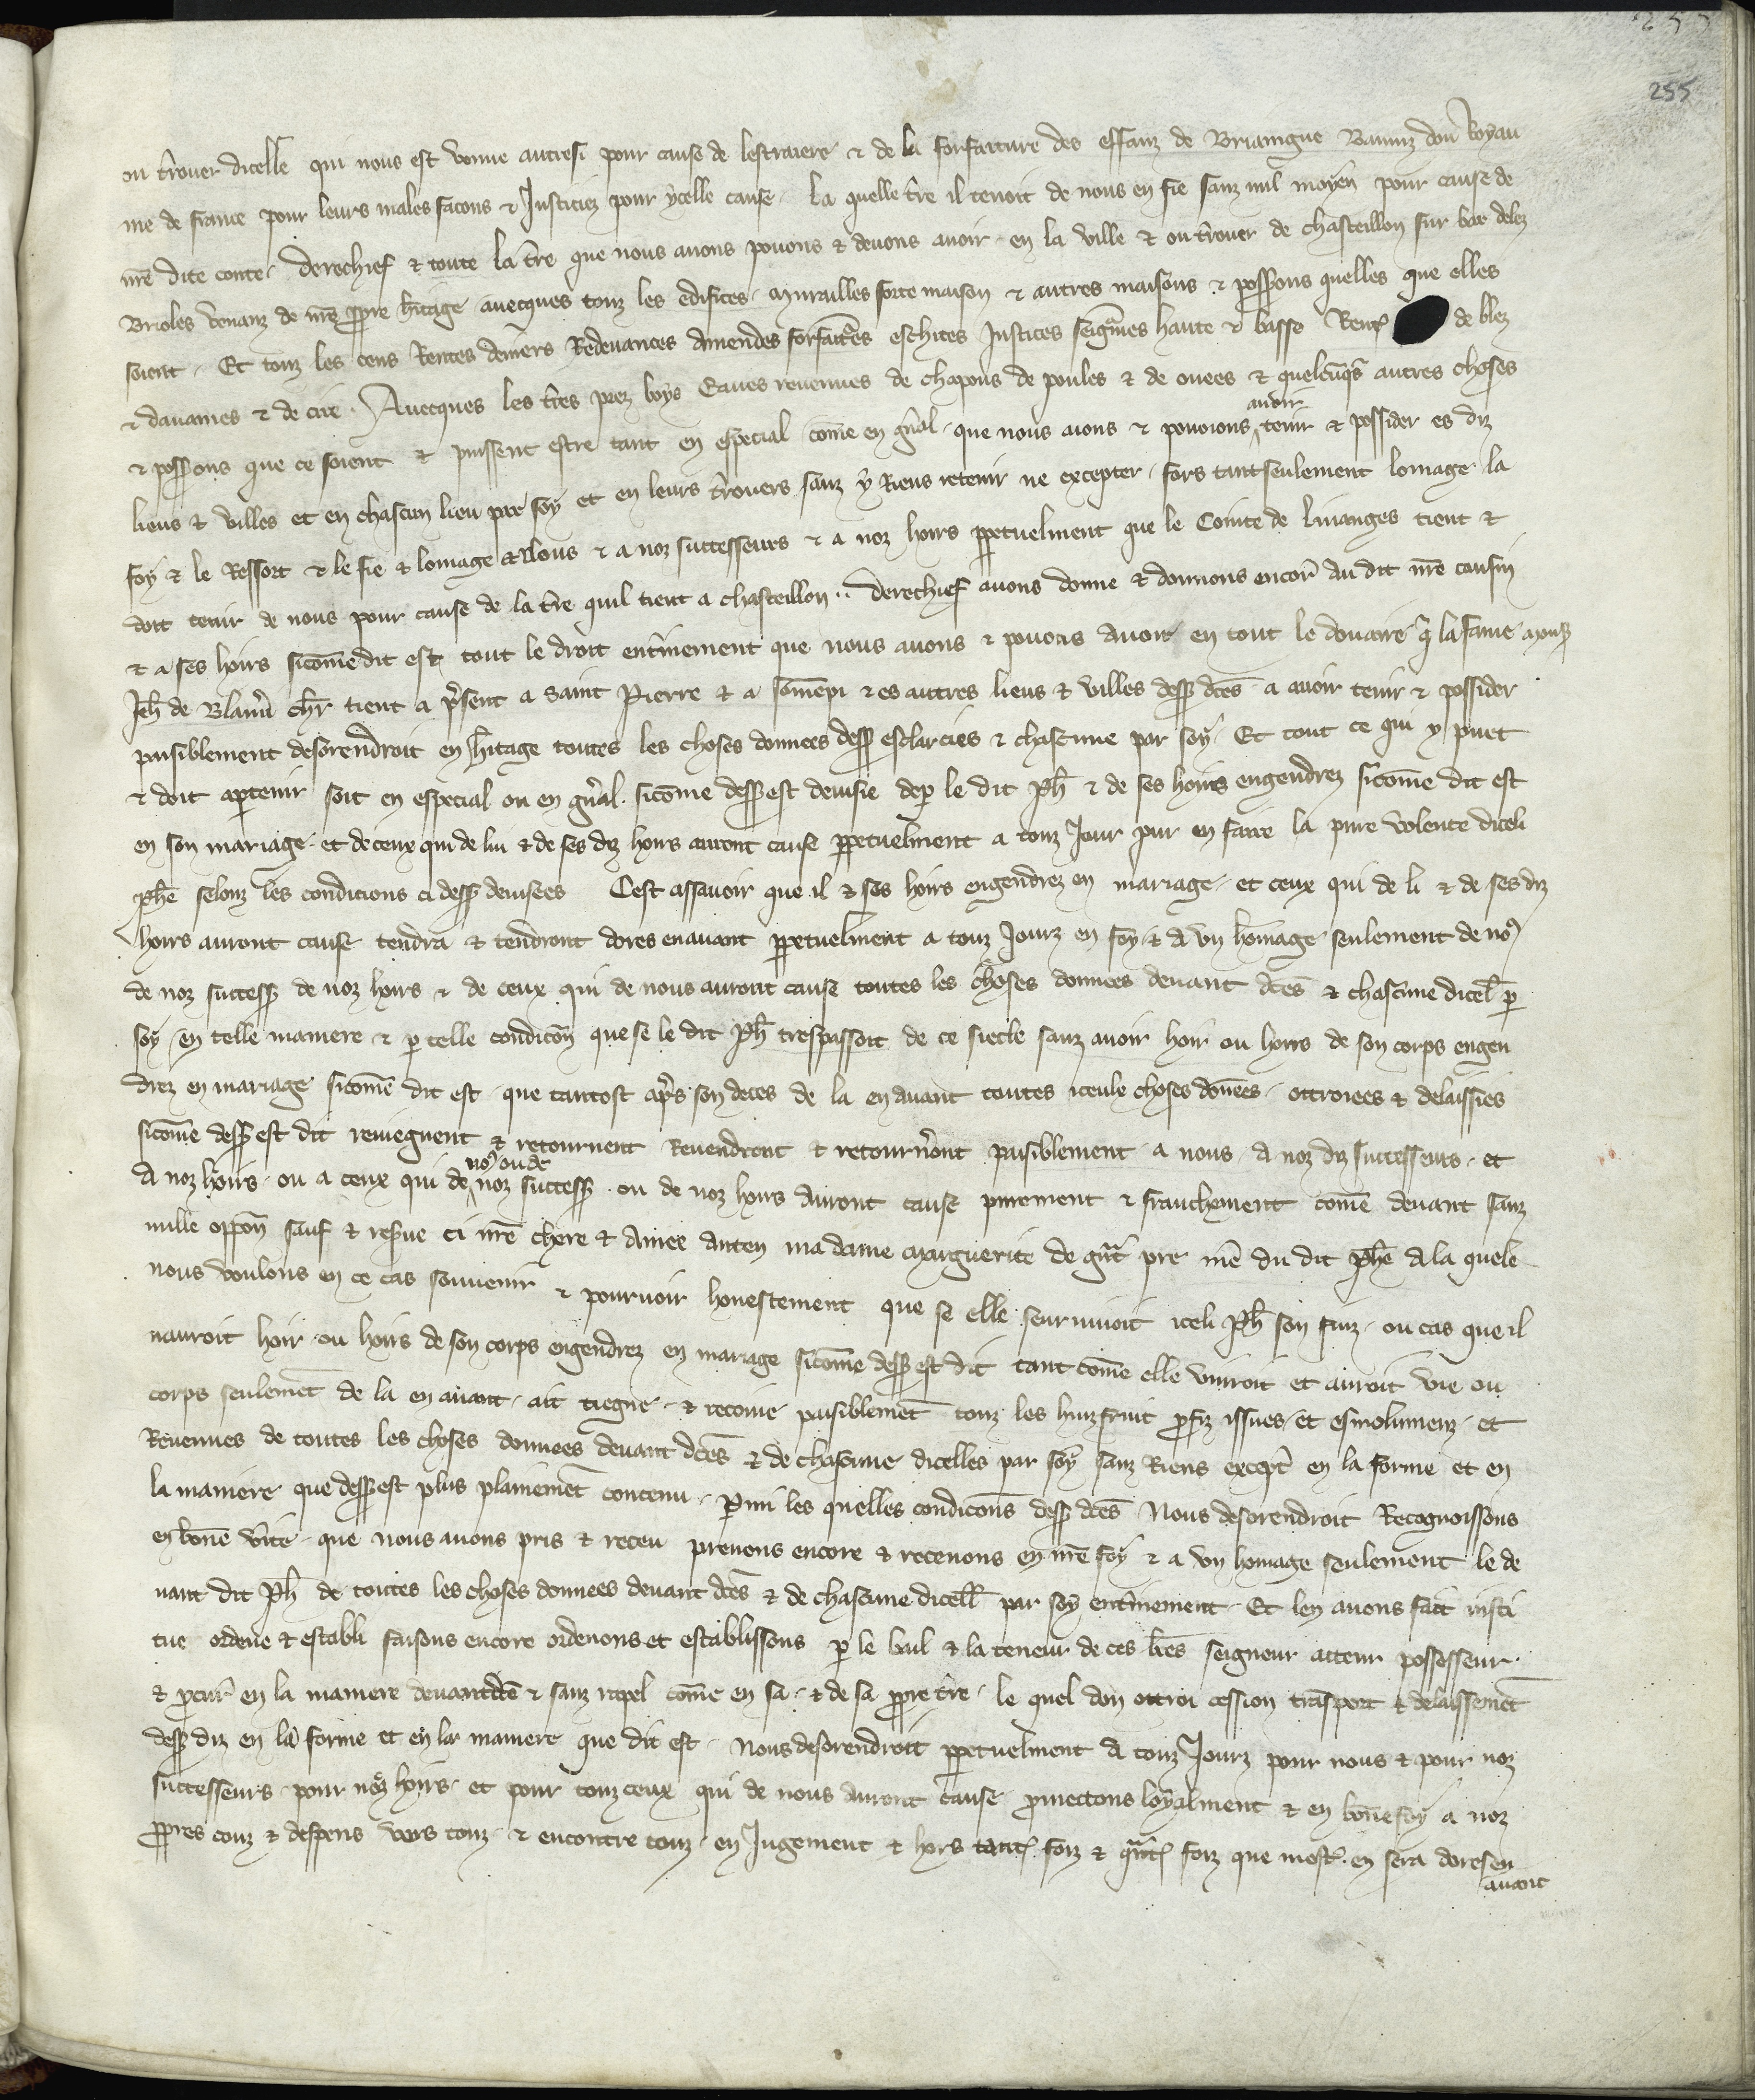 255
ou t̃rouer dicelle qui nous est venue autresi pour cause de lestraiere & de la forfaiture des effanz de Briaingne Banniz dou Royau
me de france pour leurs males facons & Justiciez pour ycelle cause. la quelle t̃re il tenoit de nous en fie sanz nul moyen pour cause de
nr̃e dite conte. Derechief & toute la t̃re que nous auons pouons & deuons auoir en la ville & ou t̃rouer de chasteillon sur bar delez
Brioles venanz de nr̃e ppre h̃itage auecques touz les edifices murailles forte maison & autres maisons & possons quelles que elles
soient. Et touz les cens Rentes deniers Redeuances amendes forfaittˀes eschites Justices seigñies haute & basse Rent de blez
& dauaines & de cire. Auecques les t̃res prez boys Eaues reuenues de chapons de poules & de ouees & quelcũqs autres choses
auoir
& possons que ce soient & puissent estre tant en especial com̃e en gñal que nous aions & pouoions tenir & possider es diz
lieus & villes et en chascun lieu par soy et en leurs t̃rouers sanz y Riens retenir ne excepter. fors tantseulement lomage la
foy & le Ressort & le fie & lomage a Nous & a noz successeurs & a noz hoirs ppetuelment que le Conte de linanges tient &
doit tenir de nous pour cause de la t̃re quil tient a chasteillon.. Derechief auons donne & donnons encor̃ au dit nr̃e cousin
& a ses hoirs sicom̃e dit est tout le droit entˀinement que nous auons & pouons auoir en tout le douaire q̃ la fame monsˀ
Jeh̃ de Blam̃ ch̃r tient a p̃sent a Saint Pierre & a som̃epi & es autres lieus & villes dessˀ dc̃es a auoir tenir & possider
paisiblement desorendroit en h̃itage toutes les choses donnees dessˀ esclarcies & chascune par soy. Et tout ce qui y puet
& doit apartenir soit en especial ou en gñal. sicom̃e dessˀ est deuisie dep le dit Ph̃ & de ses hoirs engendrez sicom̃e dit est
en son mariage et de ceux qui de lui & de ses diz hoirs auront cause ppetuelment a touz Jour pur en faire la pure volente diceli
Ph̃e selonz les condicions ci dessˀ deuisees Cest assauoir que il & ses hoirs engendrez en mariage et ceux qui de li & de ses diz
hoirs auront cause tendra & tendront dores enauant ppetuelment a touz Jourz en foy & a vn hom̃age seulement de noˀ
de noz successˀ de noz hoirs & de ceux qui de nous auront cause toutes les choses donnees deuant dc̃es & chascune dicel̃ p
soy en telle maniere & p telle condicõn que se le dit Ph̃ trespassoit de ce siecle sanz auoir hoir ou hoirs de son corps engen
drez en mariage sicom̃e dit est que tantost aprˀs son deces de la enauant toutes iceule choses don̄ees ottroiees & delaissies
sicom̃e dessˀ est dit reuiegnent & retournent Reuendront & retournˀont paisiblement a nous a noz diz successeurs et
noˀ ou de
a noz hoirs ou a ceux qui de noz successˀ ou de noz hoirs auront cause purement & franchement com̃e deuant sanz
nulle oppõn sauf & resˀue ci nr̃e chere & amee anten ma dame Marguerite de gñt pre mẽ du dit Ph̃e a la quele
nous voulons en ce cas souuenir & pouruoir honestement que se elle seuruiuoit iceli Ph̃ son fiuz ou cas que il
nauroit hoir ou hoirs de son corps engendrez en mariage sicom̃e dessˀ est dit tant com̃e elle viuroit et auroit vie ou
corps seulemẽt de la en auant ait tiegne & recoiue paisiblemẽt touz les huizfruit pfiz issues et esmolumenz et
Reuenues de toutes les choses donnees deuant dc̃es & de chascune dicelles par soy sanz Riens exceptˀ en la forme et en
la maniere que dessˀ est plus plainemẽt contenu. Parmi les quelles condicõns dessˀ dc̃es Nous desorendroit Recognoissons
en bõne vˀite que nous auons pris & receu prenons encore & receuons en nr̃e foy & a vn homage seulement le de
uant dit Ph̃ de toutes les choses donnees deuant dc̃es & de chascune dicell̃ par soy entˀinement. Et len auons fait insti
tue ordene & establi faisons encore ordenons et establissons p le bail & la teneur de ces lr̃es seigneur atteur possesseur
& pcur̃ en la maniere deuantdc̃e & sanz rapel com̃e en sa & de sa ppre t̃re le quel don ottroi cession trãsport & delaissemẽt
dessˀ diz en la forme et en la maniere que dit est. Nous desorendroit ppetuelment a touz Jourz pour nous & pour noz
successeurs pour noz hoirs et pour touz ceux qui de nous auront cause pmettons loyalment & en bõne foy a noz
ppres couz & despens vers touz & encontre touz en Jugement & hors tant foiz & qñt foiz que mestˀ en sera doresen
auant